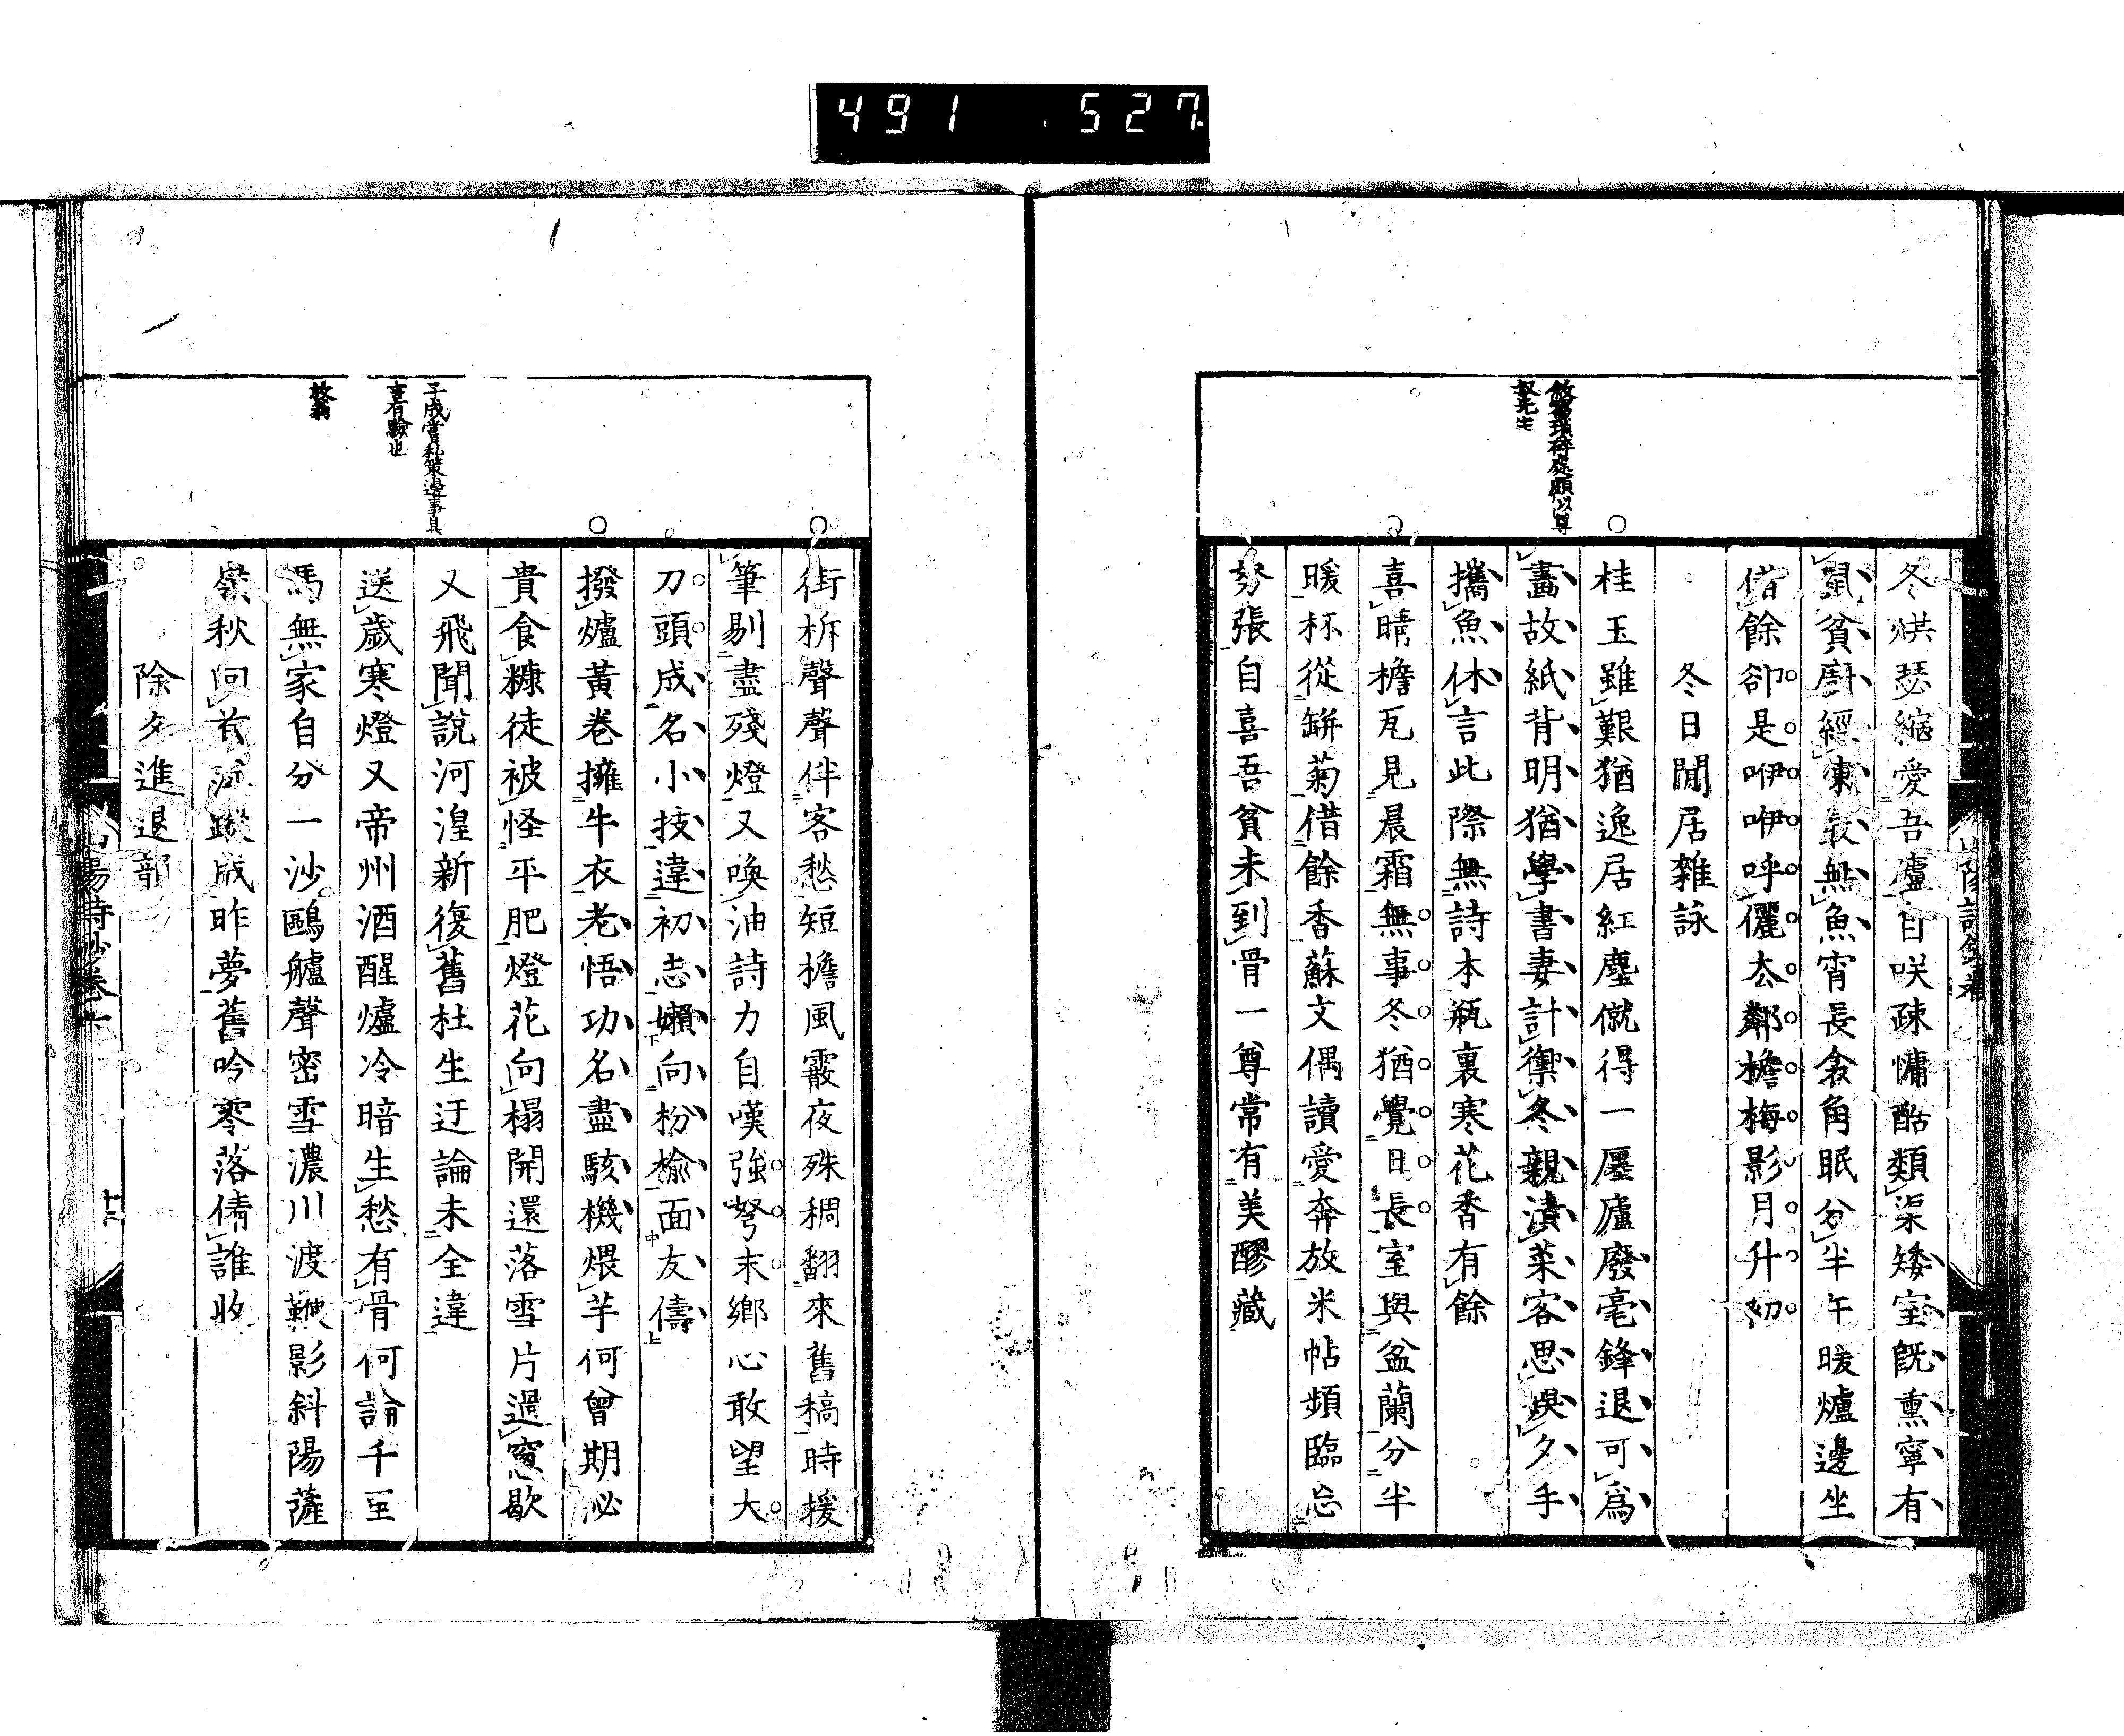 491 527
冬烘瑟縮愛吾廬自咲疎慵酷類渠矮室既熏寧有
鼠貧廚經凍竅無魚宵長衾角眠分半午暖爐邊坐
借餘卻是咿咿呼儷去鄰檐梅影月升初
冬日閒居雜詠
桂玉雖艱猶逸居紅塵僦得一廛廬廢毫鋒退可為
畵故紙背明猶學書妻計禦冬親漬菜客思娛夕手
攜魚休言此際無詩本瓶裏寒花香有餘
喜晴檐瓦見晨霜無事冬猶覺日長室與盆蘭分半
暖杯從缾菊借餘香蘇文偶讀愛奔放米帖頻臨忘
努張自喜吾貧未到骨一尊常有美醪藏
街柝聲聲伴客愁短檐風霰夜殊稠翻來舊稿時援
筆剔盡殘燈又喚油詩力自嘆強弩末鄉心敢望大
刀頭成名小技違初志嬾向枌榆面友儔
撥爐黃卷擁牛衣老悟功名盡駭機煨芋何曾期必
貴食糠徒被怪平肥燈花向榻開還落雪片過窗歇
又飛聞說河湟新復舊杜生迂論未全違
送歲寒燈又帝州酒醒爐冷暗生愁有骨何論千里
馬無家自分一沙鷗艫聲密雪濃川渡鞭影斜陽薩
嶺秋回首 蹤成昨夢舊吟零落倩誰收
除夕進退韻
子成嘗私策邊事其
言有驗也
放翁
山陽詩鈔卷
十二